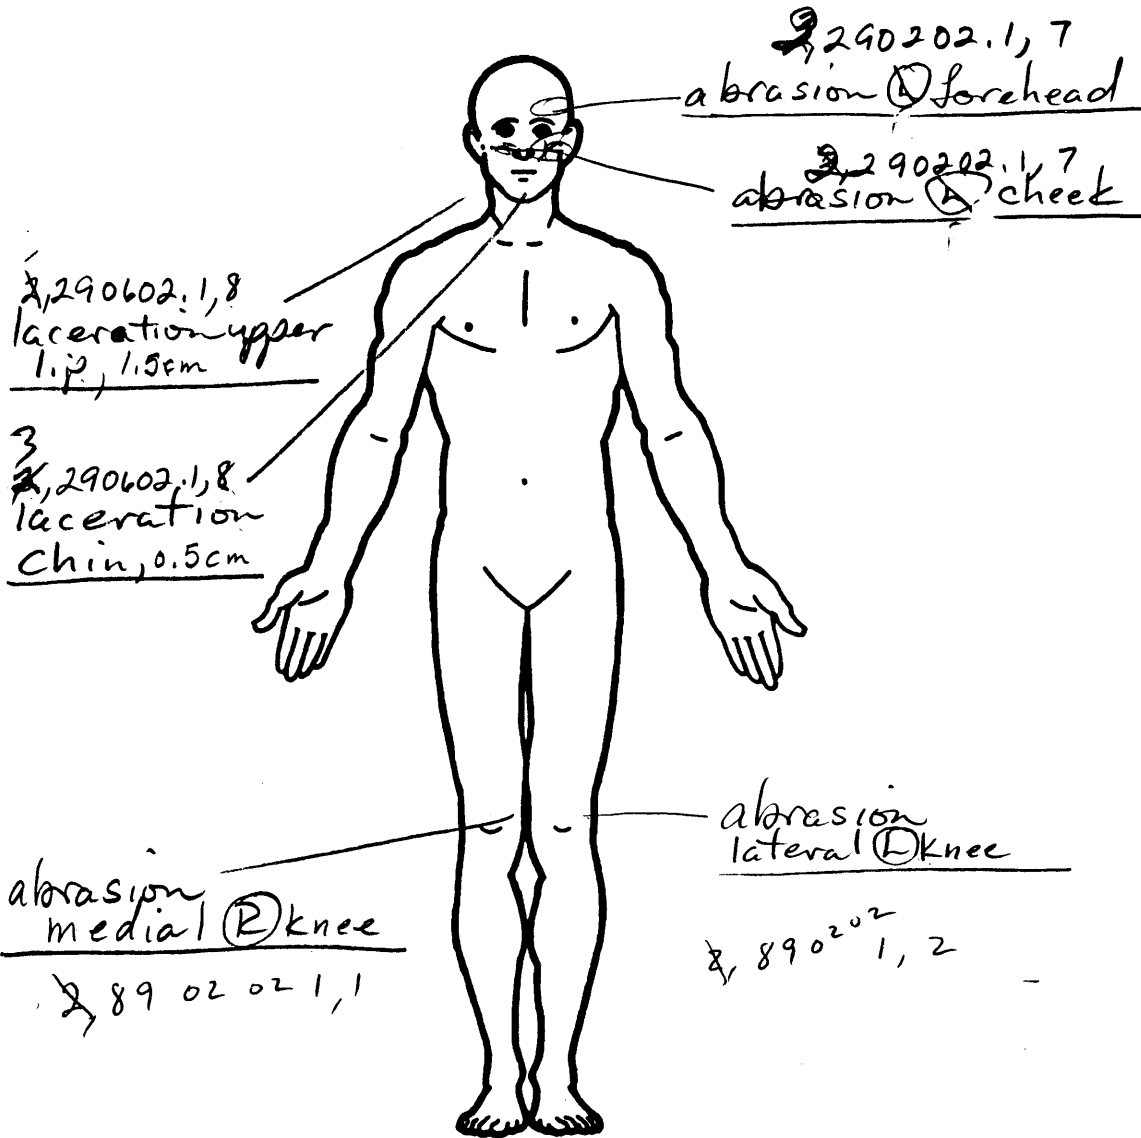 2,290202.1,7
abrasion Ⓛ forehead
2,290202.1,7
abrasion Ⓛ cheek
2,290602.1,8
laceration upper
lip, 1.5cm
3
2,290602.1,8
laceration
chin, 0.5cm
abrasion
lateral Ⓛ knee
2, 890202 1, 2
abrasion
medial Ⓡ knee
2, 89 02 02 1, 1